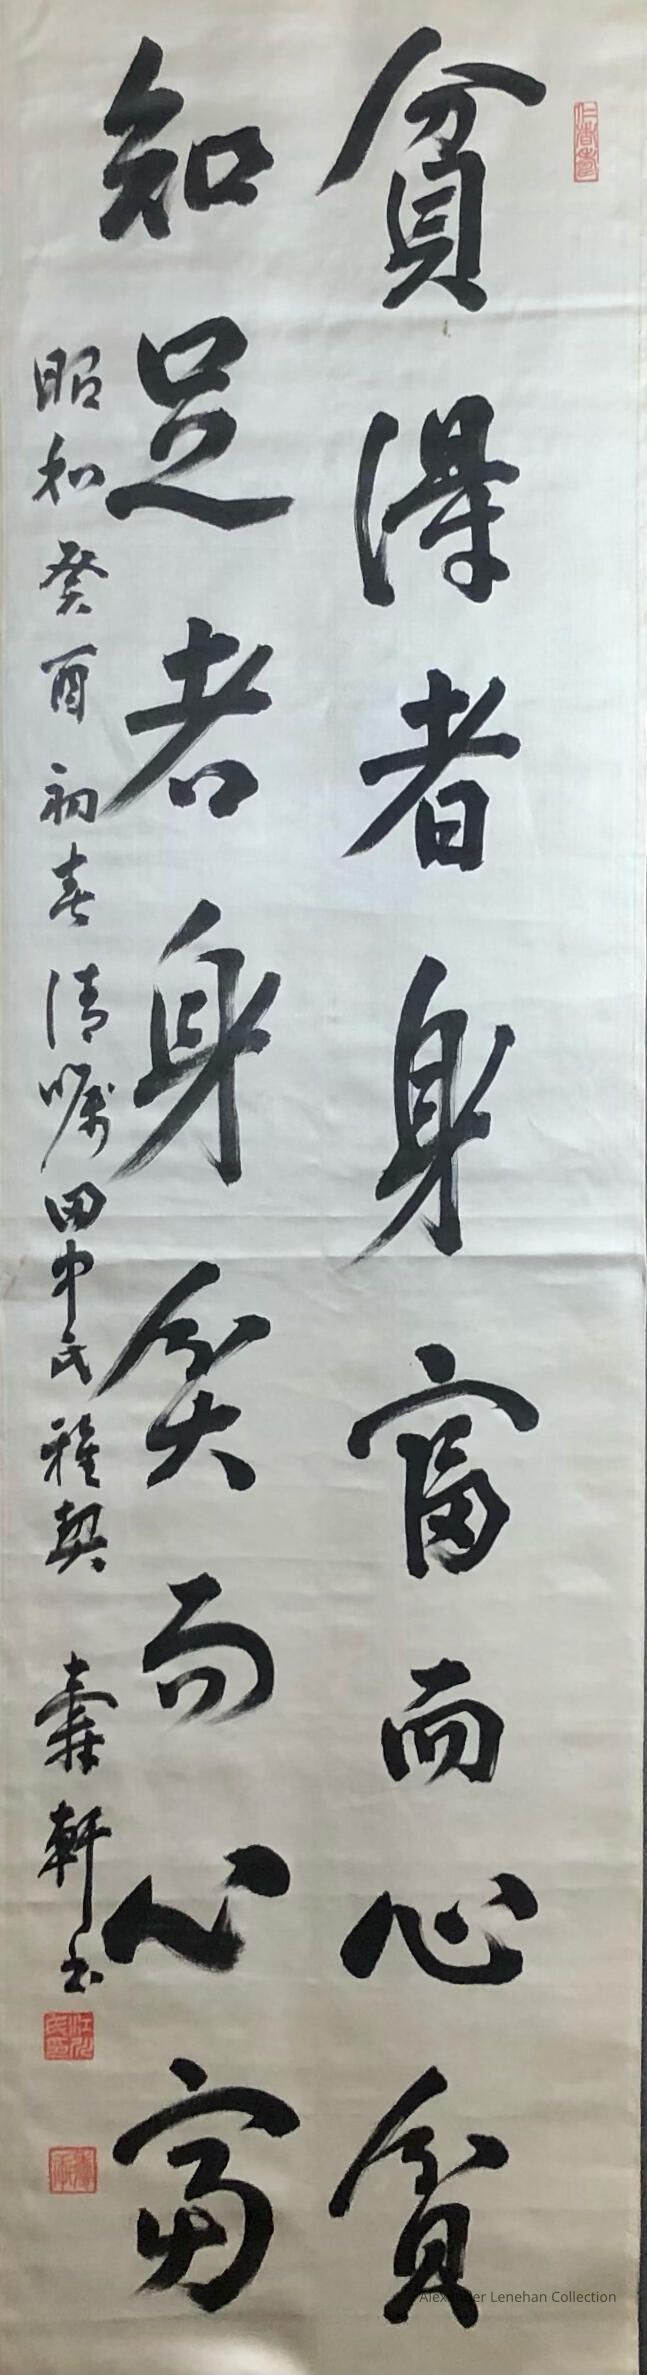 仁者壽
貪得者身富而心貧
知足者身貧而心富
昭和癸酉初春清嘱田中氏雅契 壽軒書
Alexander Lenehan Collection